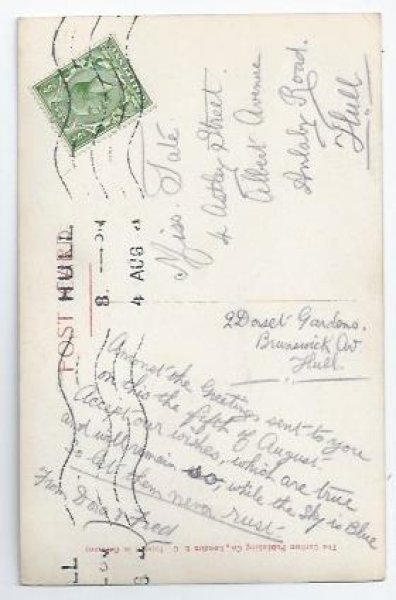 POST CARD
HULL
8
4 AUG
Miss. Tate.
4 Astley Street.
Albert Avenue
Anlaby Road.
Hull
2 Dorset Gardens.
Brunswick Av
Hull.
Amongst the Greetings sent to you
on this the fifth of August
Accept our wishes, which are true
and will remain so, while the Sky is Blue
so let them never rust.
From Dora & Fred
The Carlton Publishing Co., London E. C. Printed in Germany